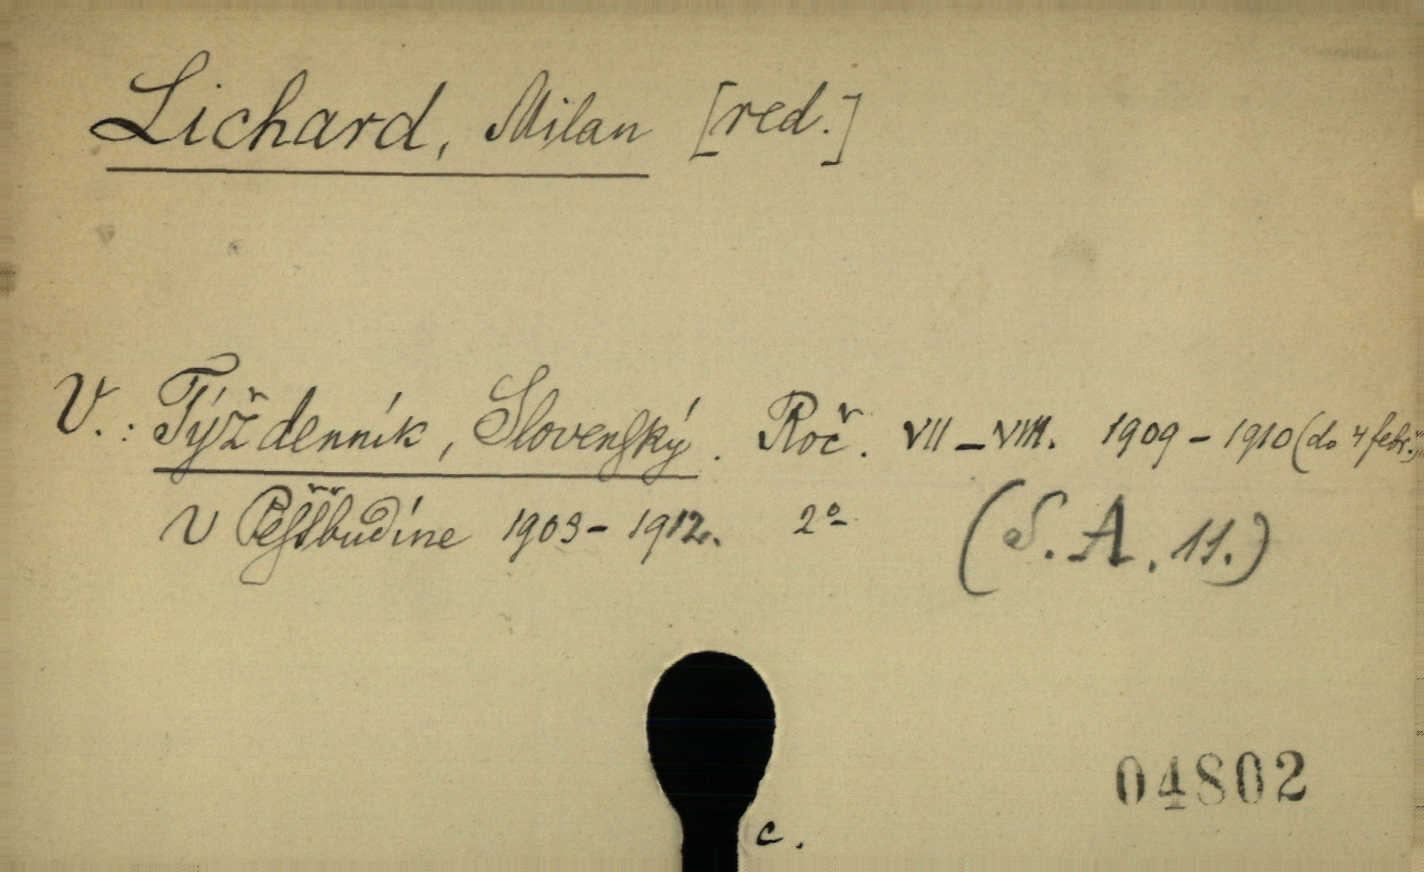 Lichard, Milan [red.]
V.: Týždenník, Slovenský. Roč. VII–VIII. 1909–1910 (do 4 febr.)
v Pešťbudíne 1903–1912. 2°
(S. A. 11.)
04802
c.